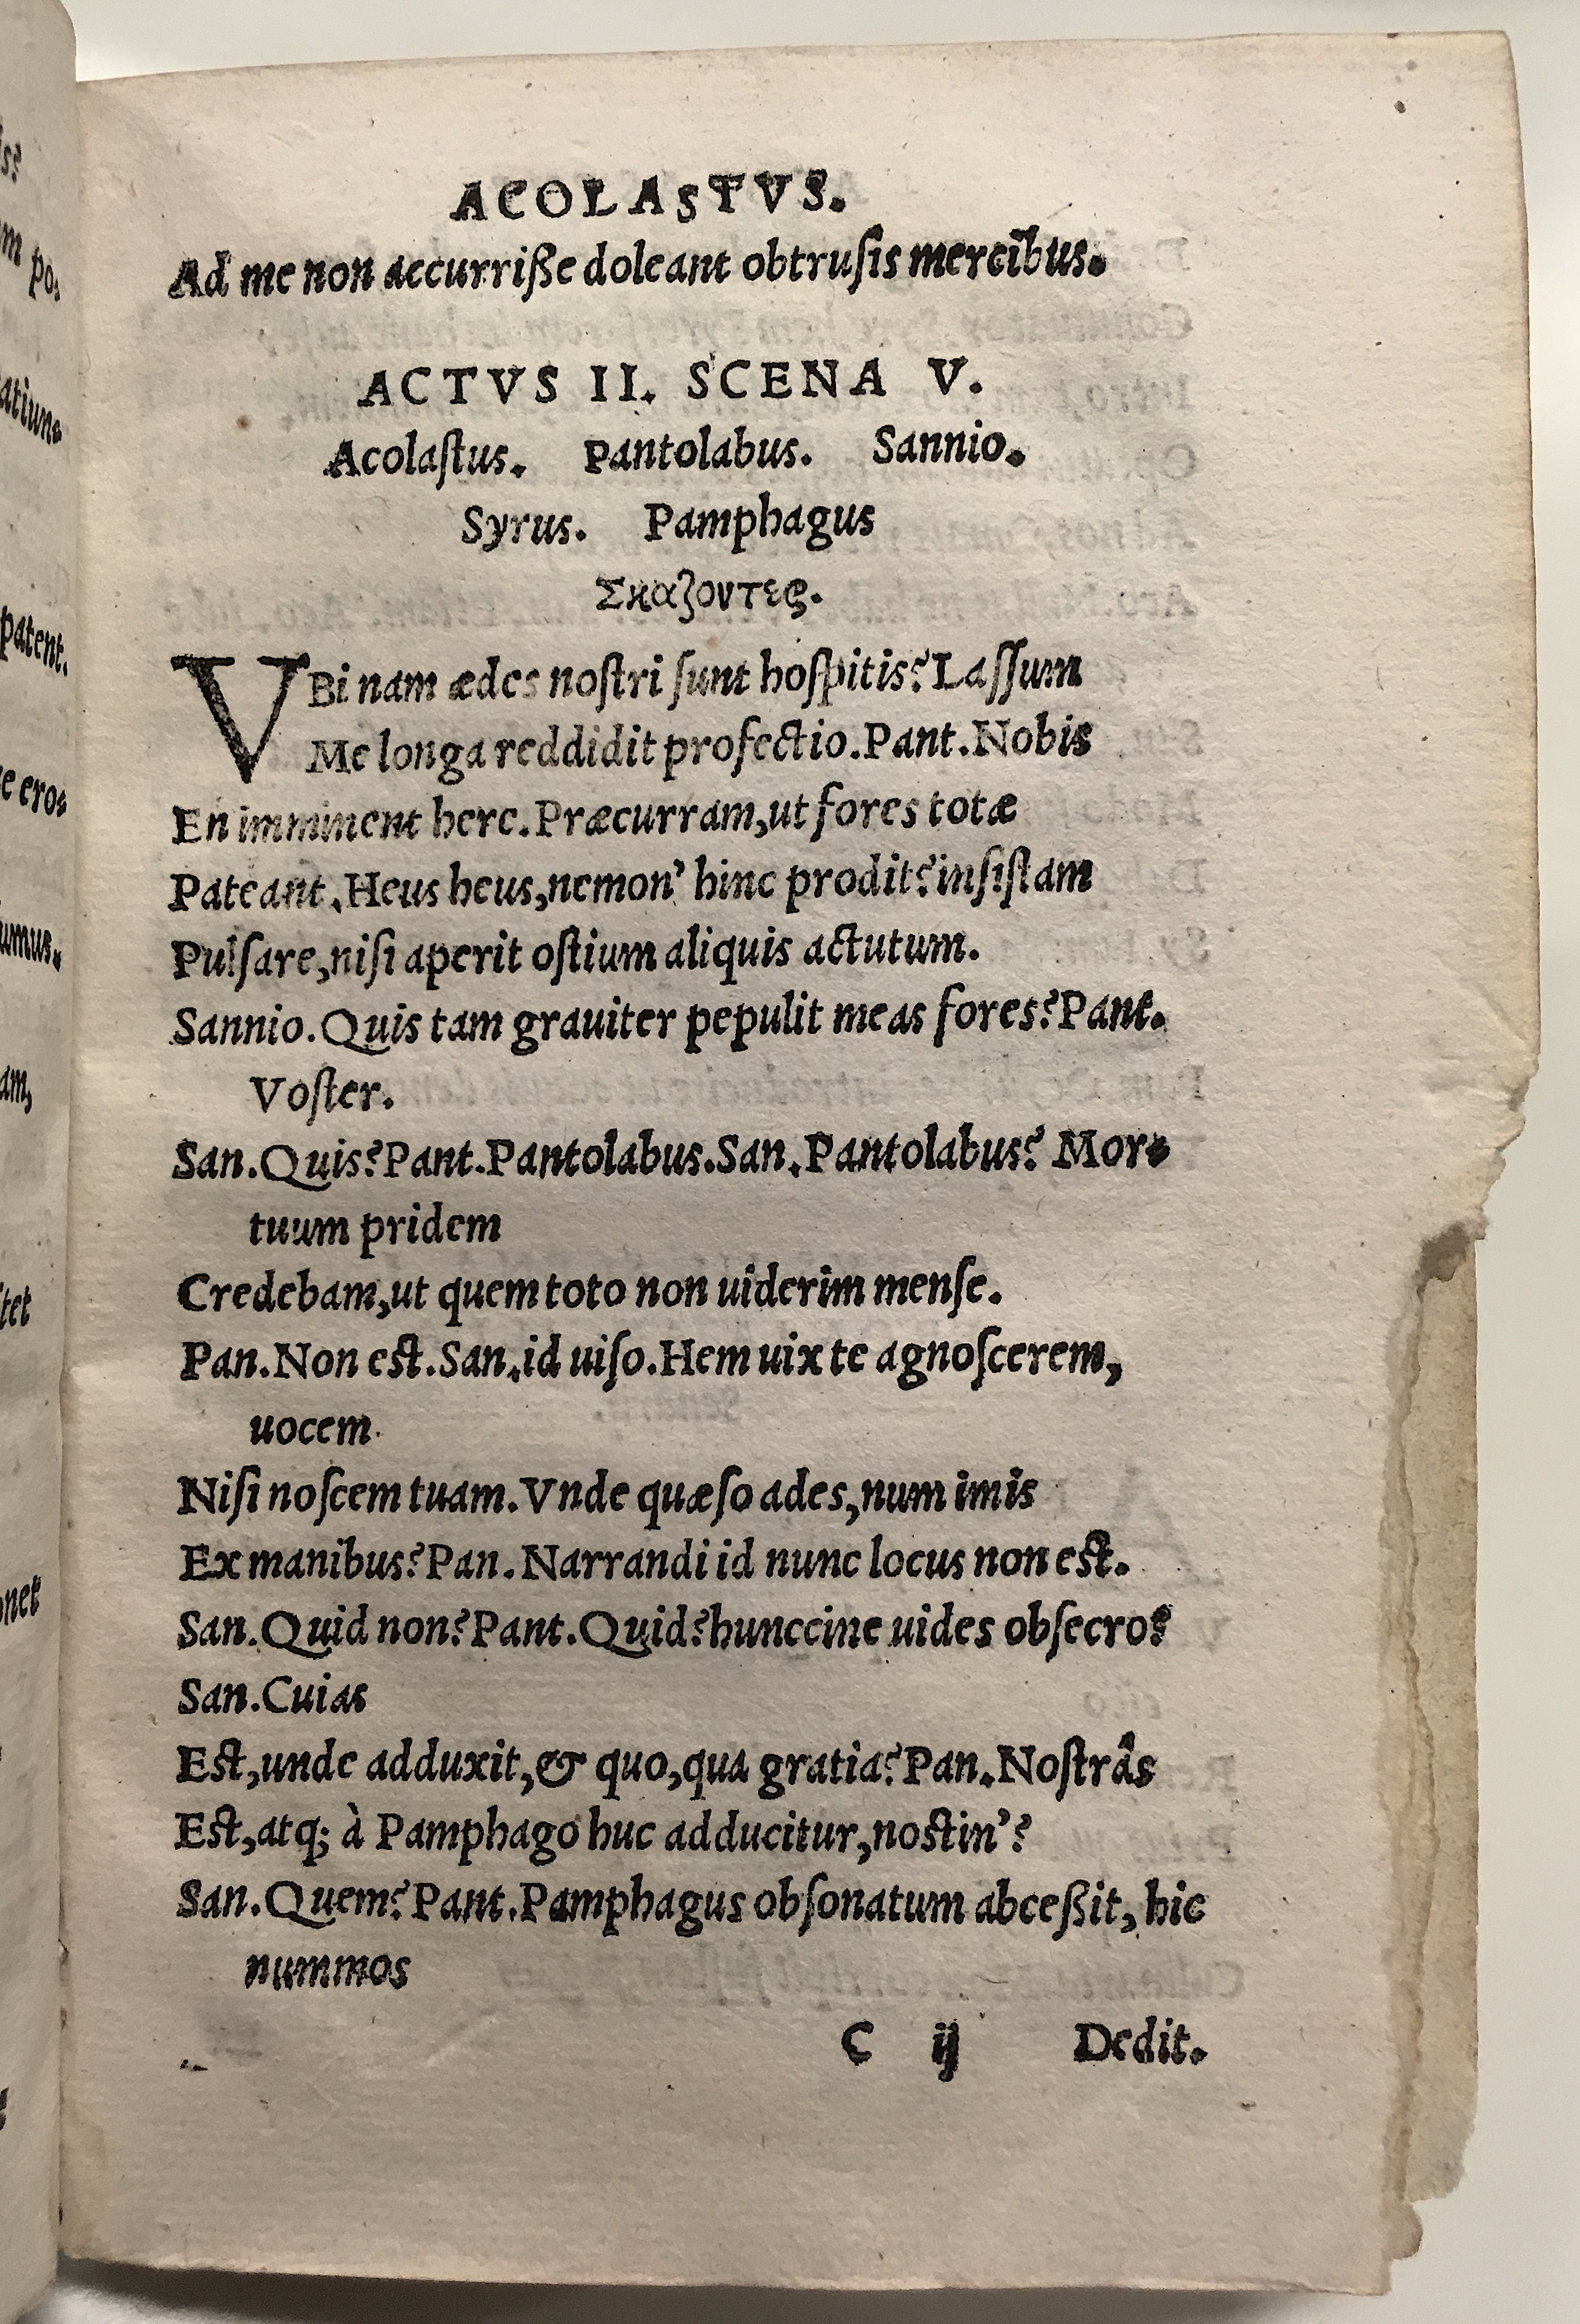 ACOLASTVS.
Ad me non accurriße doleant obtruſis mercibus.
ACTVS II. SCENA V.
Acolaſtus. Pantolabus. Sannio.
Syrus. Pamphagus
Σκαζοντες.
VBi nam ædes noſtri ſunt hoſpitis? Laſſum
Me longa reddidit profectio. Pant. Nobis
En imminent here. Præcurram, ut fores totæ
Pateant. Heus heus, nemon' hinc prodit? inſiſtam
Pulſare, niſi aperit oſtium aliquis actutum.
Sannio. Quis tam grauiter pepulit meas fores? Pant.
Voſter.
San. Quis? Pant. Pantolabus. San. Pantolabus? Mor-
tuum pridem
Credebam, ut quem toto non uiderim menſe.
Pan. Non eſt. San. id uiſo. Hem uix te agnoſcerem,
uocem.
Niſi noſcem tuam. Vnde quæſo ades, num imis
Ex manibus? Pan. Narrandi id nunc locus non eſt.
San. Quid non? Pant. Quid? hunccine uides obſecro?
San. Cuias
Eſt, unde adduxit, & quo, qua gratia? Pan. Noſtrâs
Eſt, atq; à Pamphago huc adducitur, noſtin'?
San. Quem? Pant. Pamphagus obſonatum abceßit, hic
nummos
C ij Dedit.
is?
m po-
atiun-
patent.
e ero-
umus.
am,
tet
onet